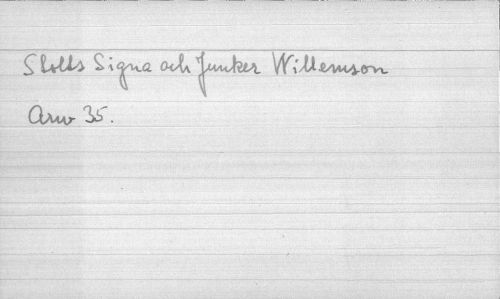 Stolts Signa och Junker Willemson
Arw 35.